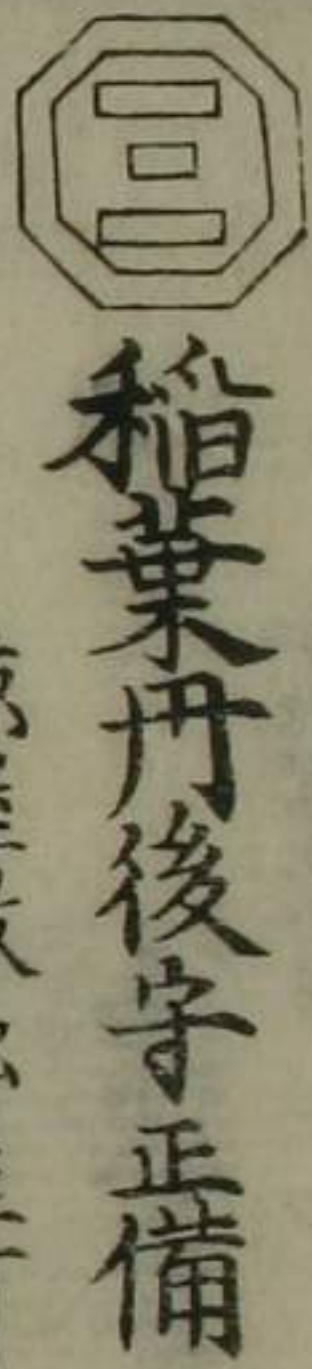 稲葉丹後守正備